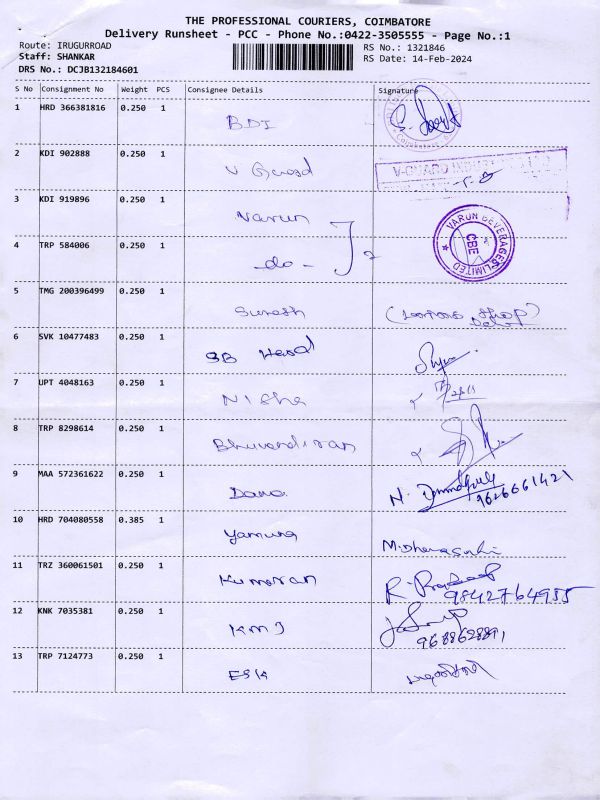 THE PROFESSIONAL COURIERS, COIMBATORE
Delivery Runsheet - PCC - Phone No.:0422-3505555 - Page No.:1
Route: IRUGURROAD
RS No.: 1321846
Staff: SHANKAR
RS Date: 14-Feb-2024
DRS No.: DCJB132184601
S No Consignment No Weight PCS Consignee Details Signature
1 HRD 366381816 0.250 1 BDI
2 KDI 902888 0.250 1 V Guard
3 KDI 919896 0.250 1 Varun
VARUN BEVERAGES LIMITED CBE
4 TRP 584006 0.250 1 - do - 2
5 TMG 200396499 0.250 1 Suresh
6 SVK 10477483 0.250 1 SB Head
7 UPT 4048163 0.250 1 Nisha
8 TRP 8298614 0.250 1
9 MAA 572361622 0.250 1 Dana 9626661421
10 HRD 704080558 0.385 1 Yamuna
11 TRZ 360061501 0.250 1 Kumaran R. Pradeep
9842764955
12 KNK 7035381 0.250 1 KMJ
9688628891
13 TRP 7124773 0.250 1